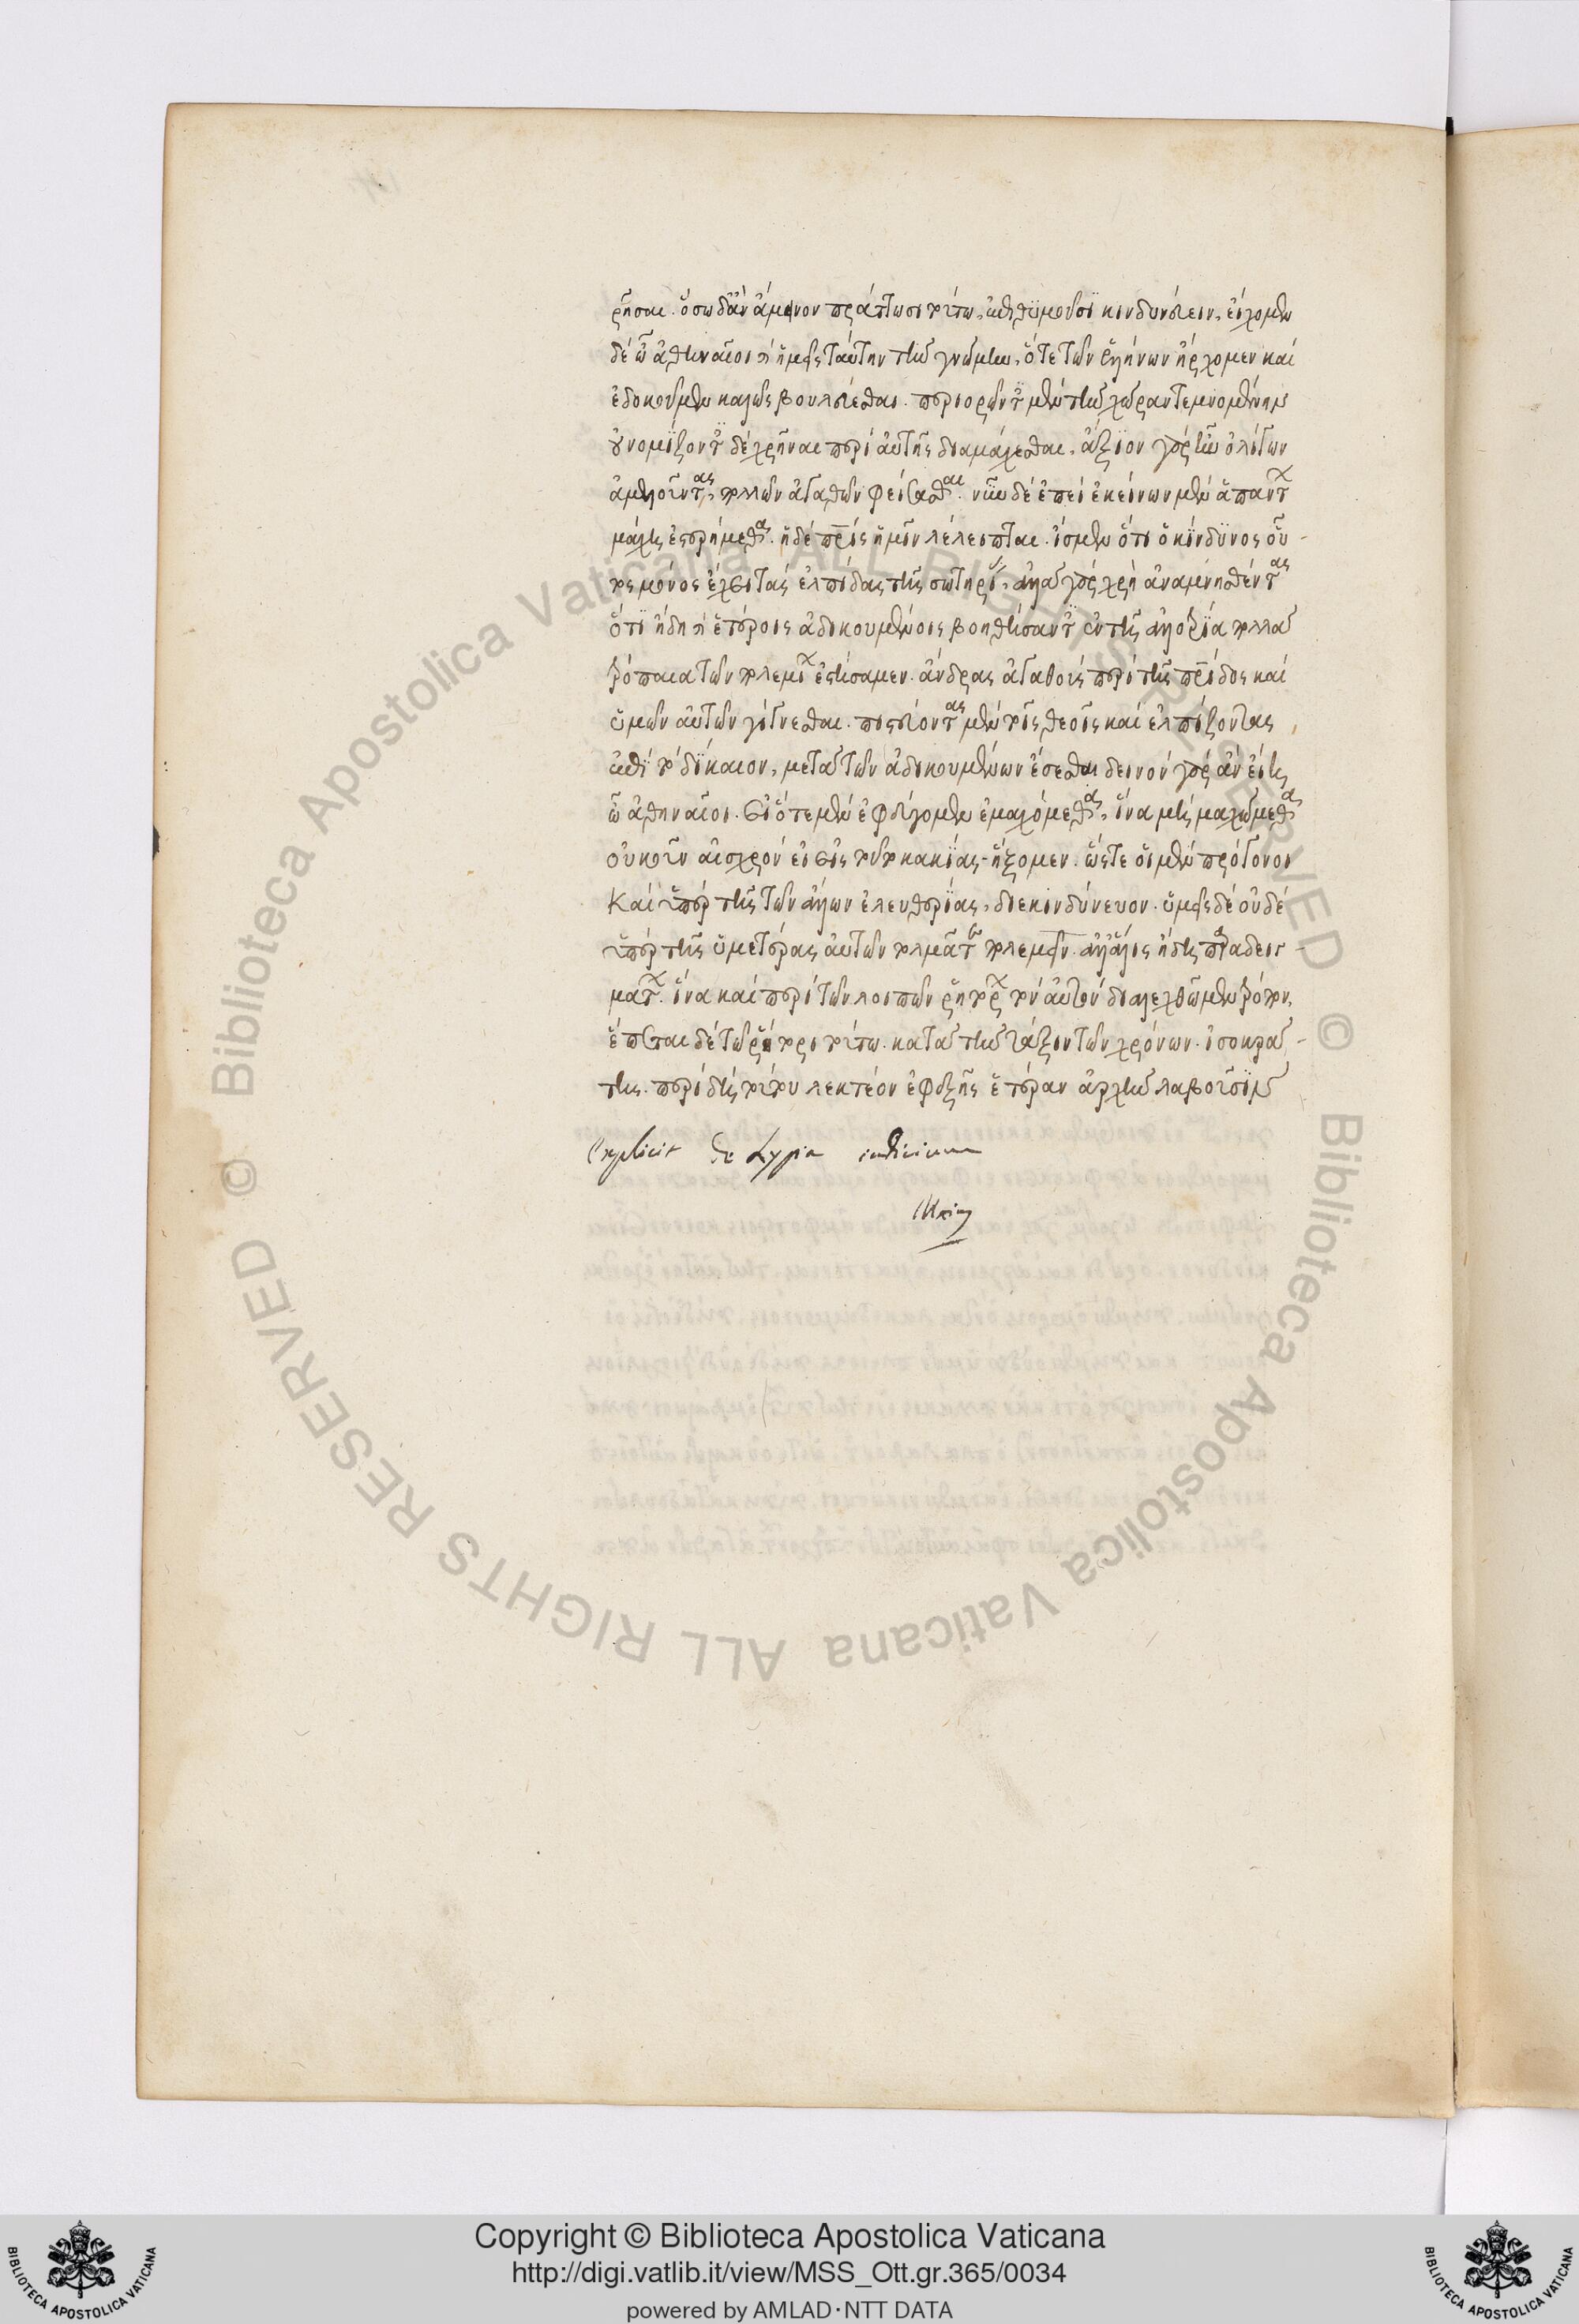 ρῆσαι. ὅσω δ' ἂν ἄμεινον πράττωσι τότω, ἐπιθυμοῦσι κινδυνεύειν. εἴχομεν
δέ ὦ ἀθηναῖοι καὶ ἡμεῖς ταύτην τὴν γνώμην, ὅτε τῶν ἑλλήνων ἤρχομεν καί
ἐδοκοῦμεν καλῶς βουλεύεσθαι. περιορῶντες μὲν τὴν χώραν τεμνομένην
οὐ νομίζοντες δὲ χρῆναι περί αὐτῆς διαμάχεσθαι. ἄξιον γάρ ἦν ὀλίγων
ἀμελοῦντας, πολλῶν ἀγαθῶν φείσασθαι. νῦν δέ ἐπεί ἐκείνων μὲν ἁπάντων
μάχῃ ἐστερήμεθα. ἡ δέ πατρίς ἡμῖν λέλειπται. ἴσμεν ὅτι ὁ κίνδυνος οὗ-
τος μόνος ἔχει τάς ἐλπίδας τῆς σωτηρίας. ἀλλὰ γάρ χρή ἀναμνησθέντας
ὅτι ἤδη καὶ ἑτέροις ἀδικουμένοις βοηθήσαντες ἐν τῇ ἀλλοτρίᾳ πολλὰ
τρόπαια τῶν πολεμίων ἐστήσαμεν. ἄνδρας ἀγαθούς περί τῆς πατρίδος καί
ὑμῶν αὐτῶν γίγνεσθαι. πιστεύοντας μὲν τοῖς θεοῖς καί ἐλπίζοντας
ἐπί τό δίκαιον, μετὰ τῶν ἀδικουμένων ἔσεσθαι δεινόν γάρ ἄν εἴη,
ὦ ἀθηναῖοι. εἰ ὅτε μὲν ἐφεύγομεν ἐμαχόμεθα, ἵνα μή μαχώμεθα
οὐκοῦν αἰσχρόν εἰ εἰς τοῦτο κακίας ἥξομεν. ὥστε οἱ μὲν πρόγονοι
Καί ὑπέρ τῆς τῶν ἄλλων ἐλευθερίας, διεκινδύνευον. ὑμεῖς δέ οὐδέ
ὑπέρ τῆς ὑμετέρας αὐτῶν τολμᾶτε πολεμεῖν. ἀλλ' ἅλις ἤδη παραδειγ-
μάτων. ἵνα καί περί τῶν λοιπῶν ῥητόρων τόν αὐτόν διαλεχθῶμεν τρόπον.
ἕπεται δέ τῶ ῥήτορι τούτω. κατὰ τὴν τάξιν τῶν χρόνων. ἰσοκρά-
της. περί δή τούτου λεκτέον ἐφεξῆς ἑτέραν ἀρχὴν λαβοῦσιν
Explicit de Lysia iudicium
Copyright © Biblioteca Apostolica Vaticana
http://digi.vatlib.it/view/MSS_Ott.gr.365/0034
powered by AMLAD · NTT DATA
BIBLIOTECA APOSTOLICA VATICANA
BIBLIOTECA APOSTOLICA VATICANA
© Biblioteca Apostolica Vaticana ALL RIGHTS RESERVED
© Biblioteca Apostolica Vaticana ALL RIGHTS RESERVED